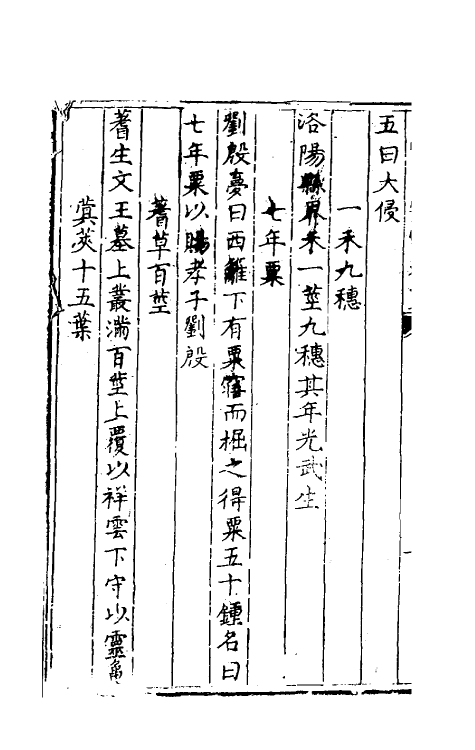 五曰大侵
一禾九穗
洛陽縣界禾一莖九穗其年光武生
七年粟
劉殷夢曰西籬下有粟窖而掘之得粟五十鍾名曰
七年粟以賜孝子劉殷
蓍草百莖
蓍生文王墓上叢滿百莖上覆以祥雲下守以靈龜
蓂莢十五葉